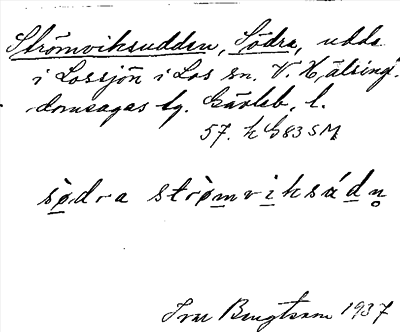 Strömviksudden, Södra, udde
i Lossjön i Los sn. V. Hälsingl.
domsagas tg. Gävleb. l.
57. h G83SM
södra strömviksúdņ
Ivar Bengtsson 1937